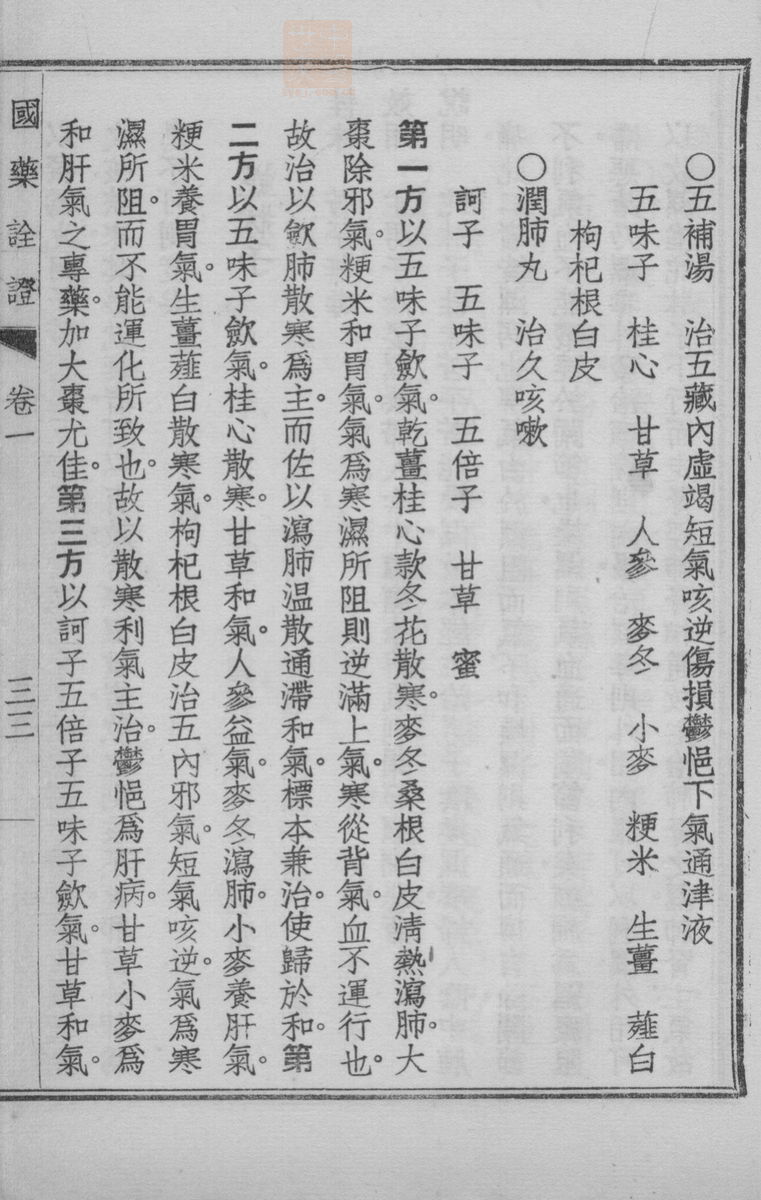 〇五補湯　治五藏內虛竭短氣咳逆傷損鬱悒下氣通津液
五味子　桂心　甘草　人參　麥冬　小麥　粳米　生薑　薤白
枸杞根白皮
〇潤肺丸　治久咳嗽
訶子　五味子　五倍子　甘草　蜜
第一方以五味子歛氣。乾薑桂心款冬花散寒。麥冬桑根白皮淸熱瀉肺。大
棗除邪氣。粳米和胃氣。氣爲寒濕所阻則逆滿上氣。寒從背氣。血不運行也。
故治以歛肺散寒爲主。而佐以瀉肺温散通滯和氣。標本兼治。使歸於和。第
二方以五味子歛氣。桂心散寒。甘草和氣。人參益氣。麥冬瀉肺。小麥養肝氣。
粳米養胃氣。生薑薤白散寒氣。枸杞根白皮治五內邪氣。短氣咳逆。氣爲寒
濕所阻。而不能運化所致也。故以散寒利氣主治。鬱悒爲肝病。甘草小麥爲
和肝氣之專藥。加大棗尤佳。第三方以訶子五倍子五味子歛氣。甘草和氣。
國藥詮證　卷一　三三